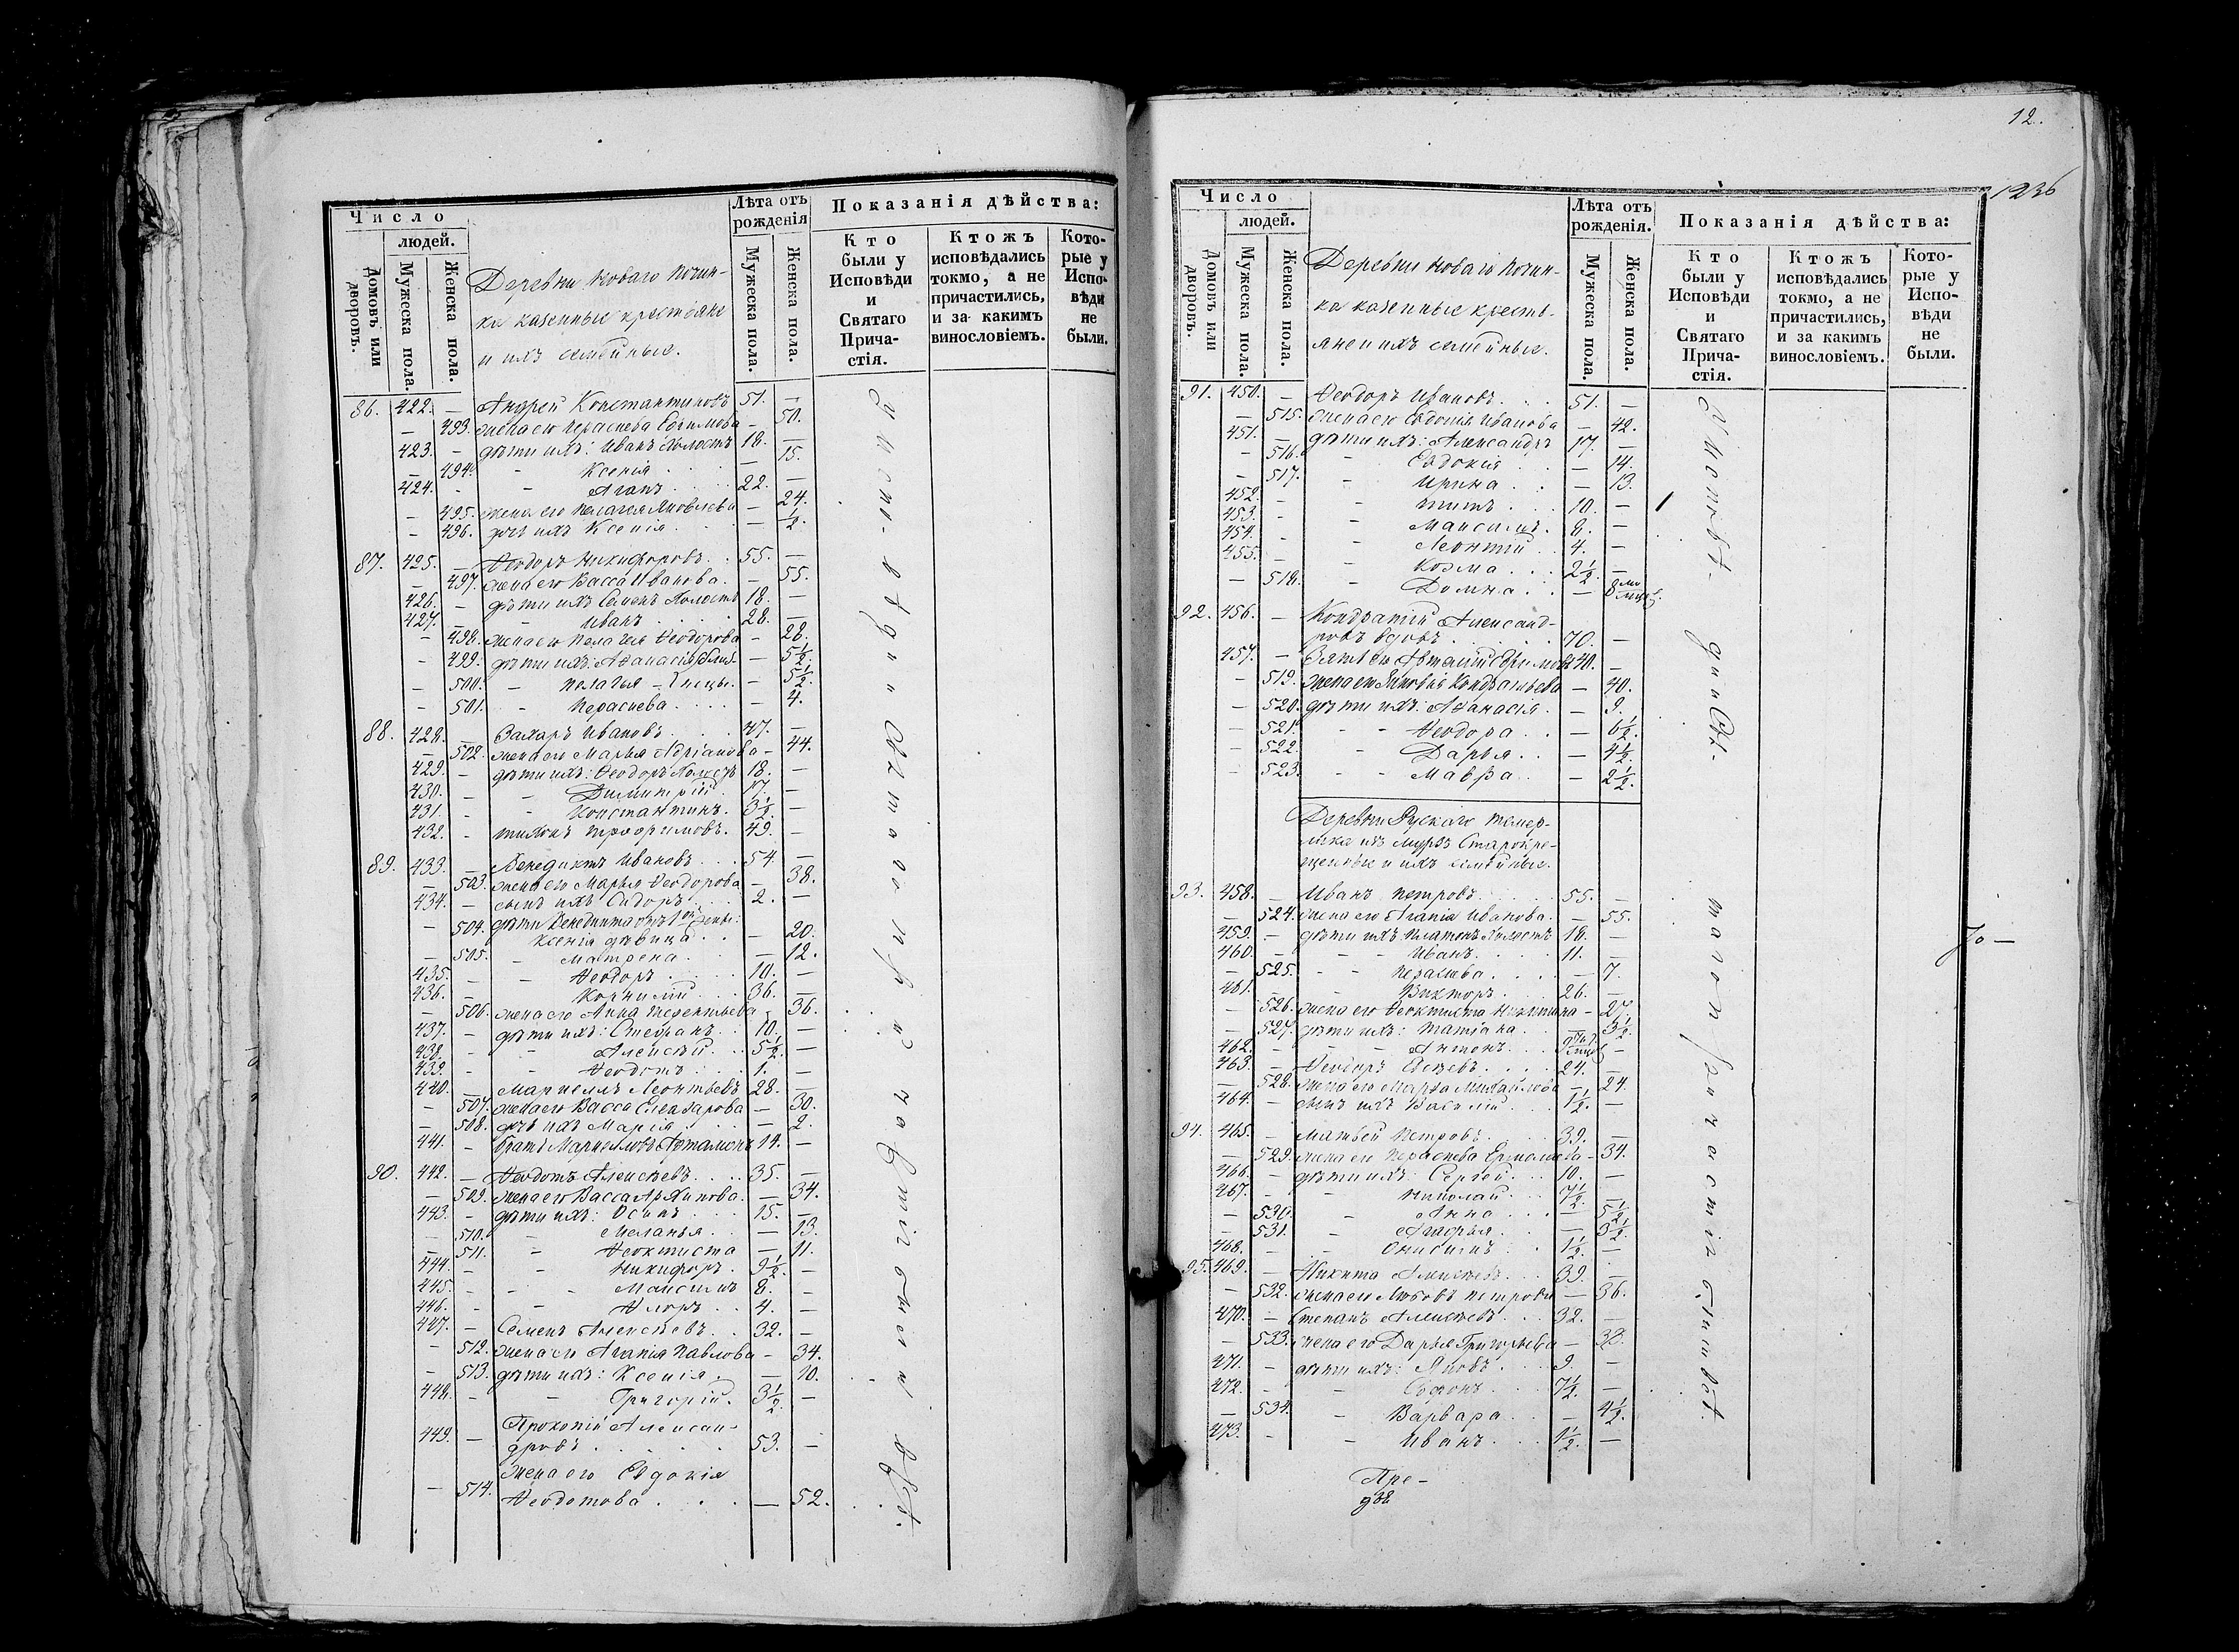 Число
людей.
Домовъ или дворовъ.
Мужеска пола.
Женска пола.
Деревни Новаго Почин-
ка казенные крестьяне
и ихъ семейные.
Лѣта отъ
рожденія
Мужеска пола.
Женска пола.
Показанія дѣйства:
Кто
были у
Исповѣди
и
Святаго
Прича-
стія.
Ктожъ
исповѣдались
токмо, а не
причастились,
и за какимъ
винословіемъ.
Кото-
рые у
Испо-
вѣди
не
были.
86. 422. — Андрей Константиновъ 51. —
— 493. жена его Пераскева Евфимова — 50.
423. — дѣти ихъ: Иванъ холостъ 18. —
— 494. - Ксенія . . . — 15.
424. - - Агапъ . . . 22. —
— 495. жена его Пелагея Яковлева — 24.
— 496. дочь ихъ Ксенія . . . — ½.
87. 425. — Ѳеодоръ Никифоровъ . . 55. —
— 497. жена его Васса Иванова . — 55.
426. — дѣти ихъ Семенъ холостъ 18. —
427. — - Иванъ . . . 28. —
- 498. жена его Пелагея Ѳеодорова - 28.
- 499. дѣти ихъ: Аѳанасія — 5½.
- 500. - Пелагея — 5½.
- 501. - Пераскева . . . — 4.
88. 428. — Захаръ Ивановъ . . . 47. —
— 502. жена его Марья Адріанова - 44.
429. — дѣти ихъ: Ѳеодоръ холостъ 18. —
430. — - Димитрій . 17. —
431. - - Константинъ . 3½. —
432. - Тихонъ Трофимовъ . 49. —
89. 433. — Венедиктъ Ивановъ . . . 54. —
— 503. жена его Марья Ѳеодорова — 38.
434. — сынъ ихъ Сидоръ . . . 2. —
— 504. дѣти Венедикта отъ 1ой жены:
Ксенія дѣвица . . — 20.
— 505. - Матрена . . . — 12.
435. — - Ѳеодоръ . . . 10. —
436. — Корнилій . . . 36. —
— 506. жена его Анна Терентьева - 36.
437. — дѣти ихъ: Стефанъ . . 10. —
438. - - Алексѣй . . . 5½. —
439. - - Ѳеодотъ . . . 1. —
440. — Маркеллъ Леонтьевъ 28. —
— 507. жена его Васса Елеазарова — 30.
— 508. дочь ихъ Марія . . . — 2.
441. - братъ Маркелловъ Артамонъ 14. —
90. 442. — Ѳеодотъ Алексѣевъ . . . 35. —
— 509. жена его Васса Архипова . — 34.
443. — дѣти ихъ: Осипъ . . . 15. —
— 510. - Меланья . . — 13.
— 511. - Ѳеоктиста — 11.
444. — - Никифоръ . 9½. —
445. - - Максимъ 8. —
446. - - Флоръ . . 4. —
447. — Семенъ Алексѣевъ . . 32. —
— 512. жена его Агапія Павлова - 34.
- 513. дѣти ихъ: Ксенія . — 10.
448. — - Григорій . 3½. —
449. — Прокопій Алексан-
дровъ . . . . . 53. —
— 514. жена его Евдокія
Ѳеодотова . . . . — 52.
у Исповѣди и Святаго Причастія были всѣ.
12.
1236
Число
людей.
Домовъ или дворовъ.
Мужеска пола.
Женска пола.
Деревни Новаго Почин-
ка казенные кресть-
яне и ихъ семейные.
Лѣта отъ
рожденія.
Мужеска пола.
Женска пола.
Показанія дѣйства:
Кто
были у
Исповѣди
и
Святаго
Прича-
стія.
Ктожъ
исповѣдались
токмо, а не
причастились,
и за какимъ
винословіемъ.
Кото-
рые у
Испо-
вѣди
не
были.
91. 450. — Ѳеодоръ Ивановъ . . . 51. —
— 515. жена его Евдокія Иванова — 42.
451. — дѣти ихъ: Александръ 17. —
- 516. - Евдокія . . — 14.
- 517. - Ирина . . — 13.
452. — - Титъ . . . 10. —
453. - - Максимъ . 8. —
454. - - Леонтій . . 4. —
455. - - Козма . . . 2½. —
— 518. - Домна . . — 8
92. 456. — Кондратій Александ-
ровъ вдовъ . . . . 70. —
457. — Зять его Евфимовъ 40. —
— 519. жена его Кондратьева — 40.
— 520. дѣти ихъ: Аѳанасія . — 9.
- 521. - - Ѳеодора . . — 6½.
- 522. - - Дарья . . — 4½.
- 523. - - Мавра . . — 2½.
Деревни Рускаго Темер-
лика изъ Старокре-
щенные и ихъ семейные.
93. 458. — Иванъ Петровъ . . . 55. —
— 524. жена его Агапія Иванова . — 55.
459. — дѣти ихъ: Платонъ холостъ 18. —
460. — - - Иванъ . . . . 11. —
— 525. - - Пераскева . . . . — 7.
461. - - Викторъ . . . 26. —
— 526. жена его Ѳеоктиста Никитина - 27.
— 527. дѣти ихъ: Татіана . . . — 3½.
462. — - - Антонъ . . . 9 —
463. — Ѳеодоръ . . . . 24. —
— 528. жена его Марѳа Михайлова — 24.
464. — сынъ ихъ Василій . . . 1½. —
94. 465. — Матвей Петровъ . . . 39. —
— 529. жена его Пераскева Ермолаева - 34.
466. — дѣти ихъ: Сергей . . . 10. —
467. - - Николай . . . 7½. —
— 530. - Анна . . . — 5½.
— 531. - Агафья . . . — 3½.
468. — - Онисимъ . . 1½. —
95. 469. — Никита Алексѣевъ . . 39. —
— 532. жена его Любовь Петрова — 36.
470. — Степанъ Алексѣевъ . . 32. —
— 533. жена его Дарья Григорьева — 32.
471. — дѣти ихъ: Яковъ . . . 9. —
472. - - Софонъ . . . 7½. —
— 534. - Варвара . . — 4½.
473. - - Иванъ . . . 1½. —
у Исповѣди и Святаго причастія были всѣ.